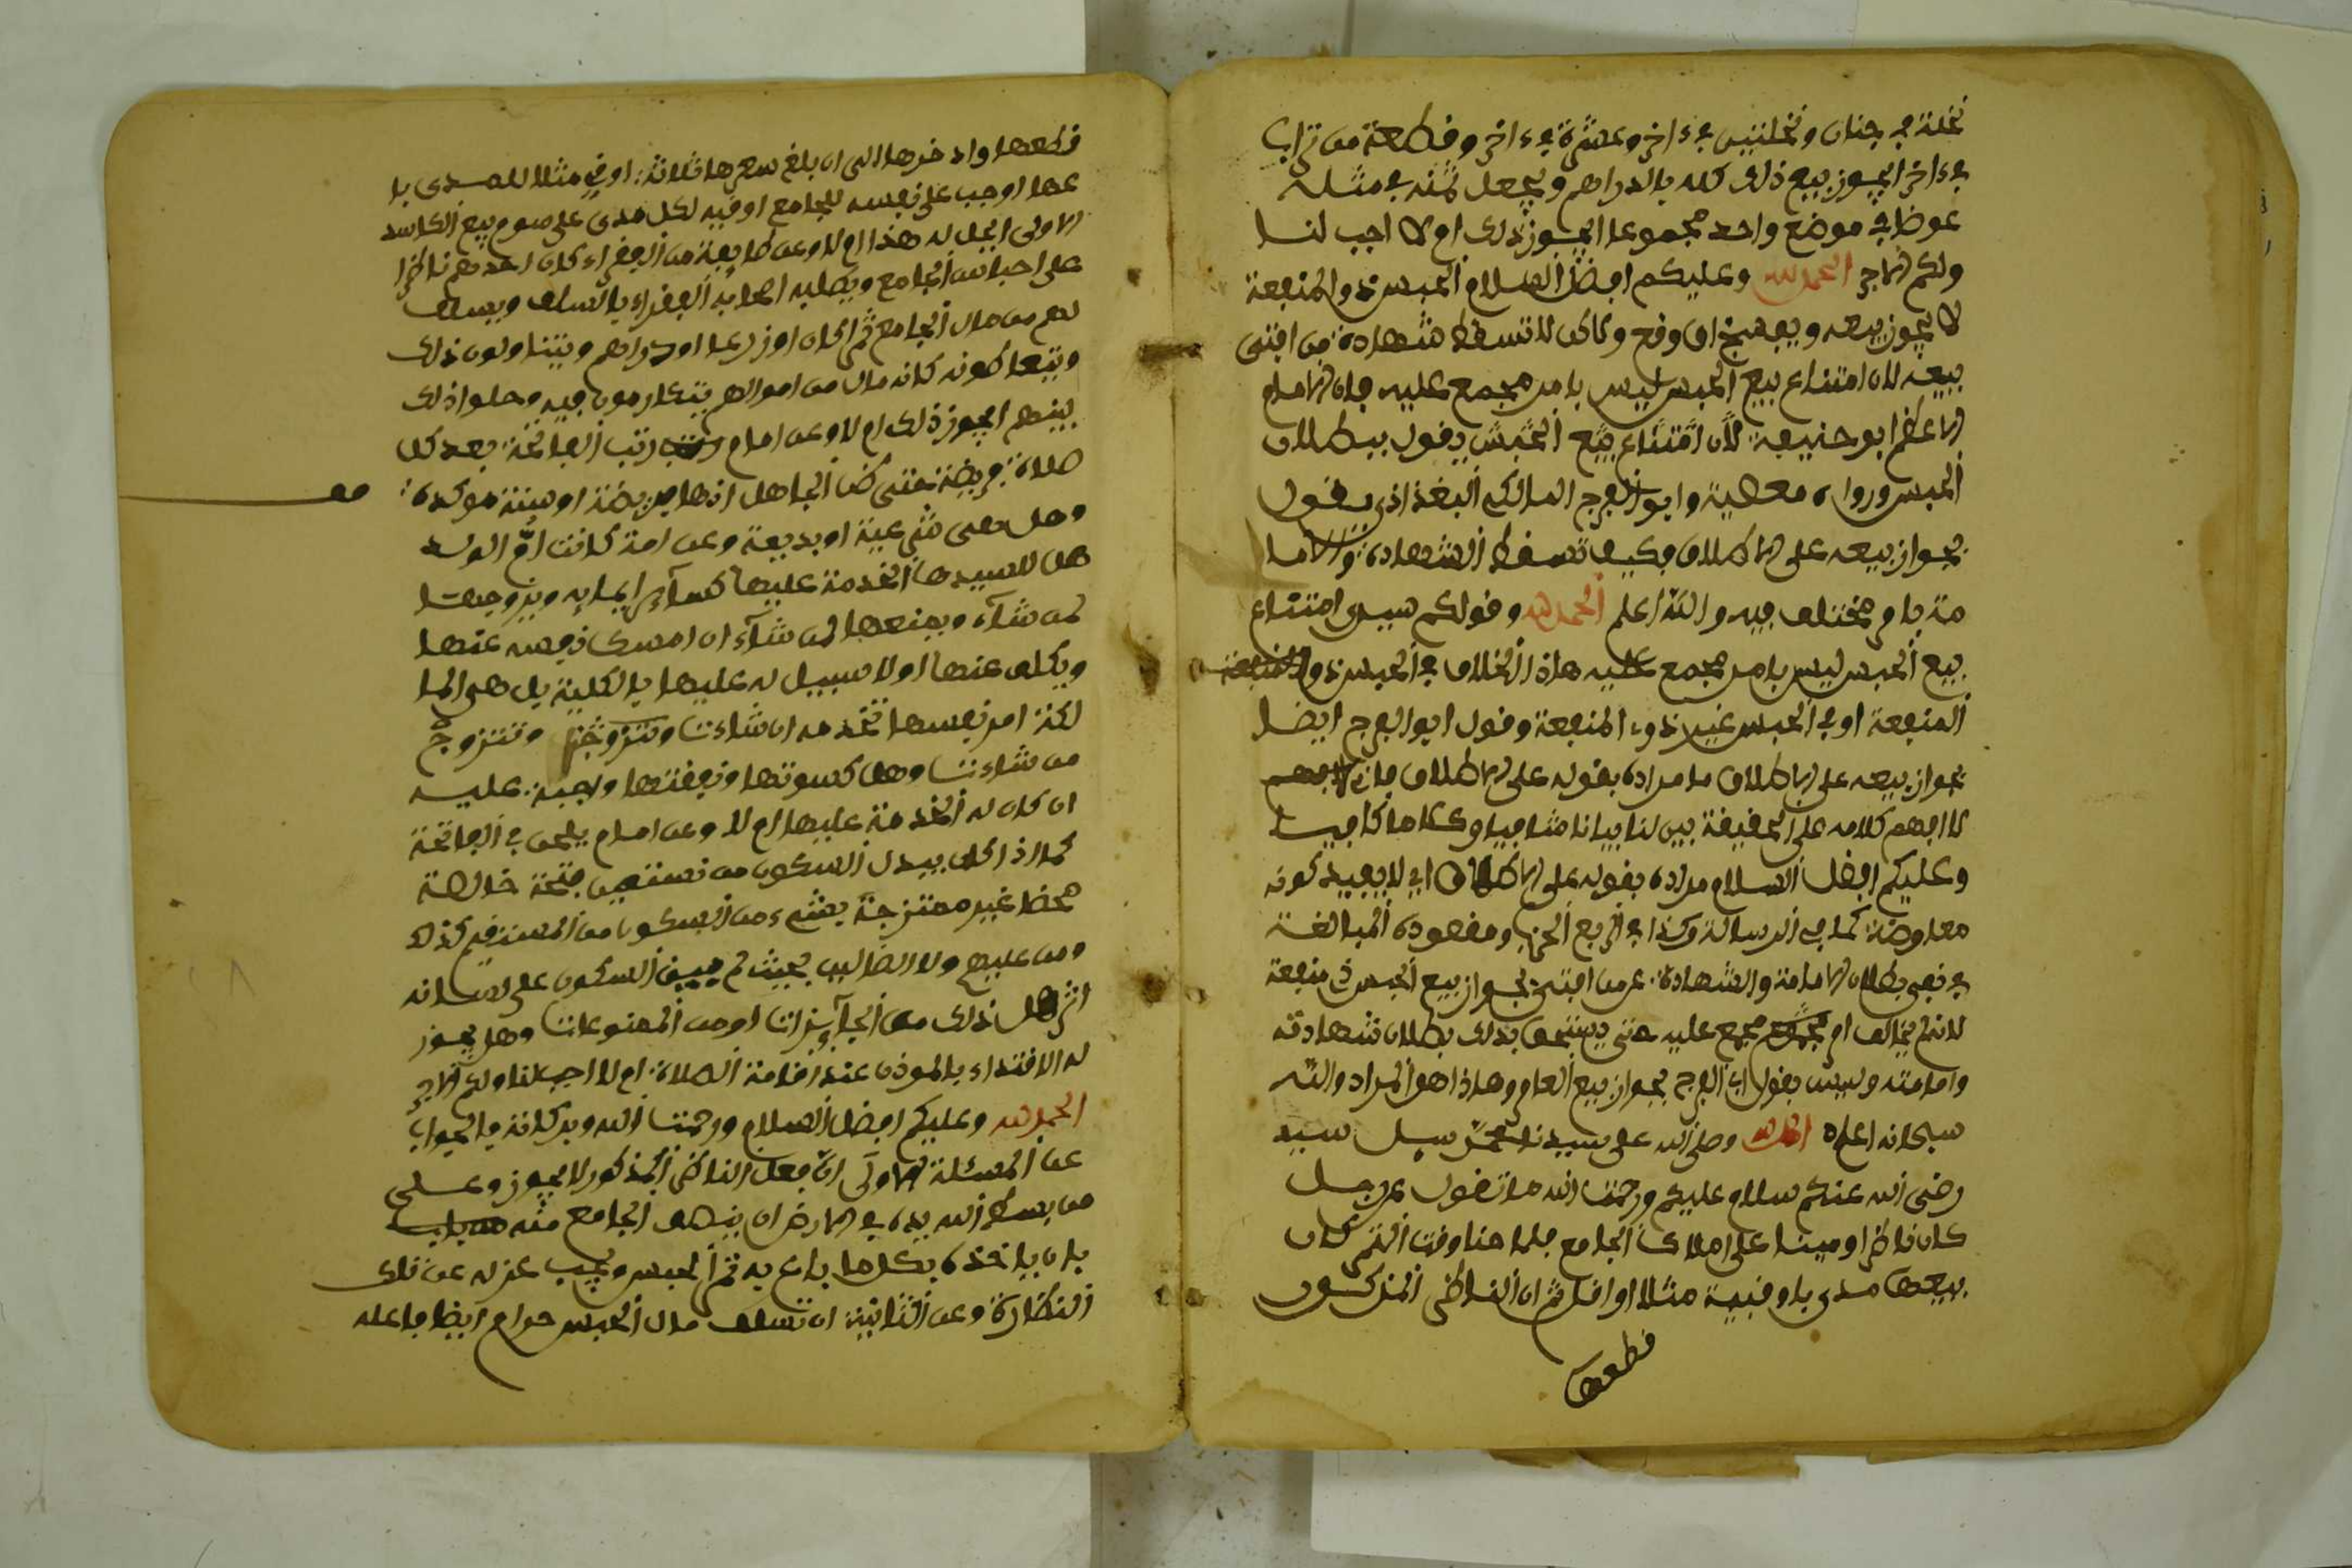 نخلة في جنان ونخلتين في ءاخر وعشرة في ءاخر وقطعة من تراب
في ءاخر ايجوز بيع ذلك كله بالدراهم ويجعل ثمنه في مثله
عوضا في موضع واحد مجموعا ايجوز ذلك ام لا اجب لنا
ولكم الاجر الحمد لله وعليكم افضل السلام الحبس ذو المنفعة
لا يجوز بيعه ويفسخ ان وقع ولاكن لا تسقط شهادة من افتى
ببيعه لان امتناع بيع الحبس ليس بامر مجمع عليه فان الامام
الاعظم ابو حنيفة لان امتناع بيع الحبس يقول ببطلان
الحبس ورواه معصية وابو الفرج المالكي البغداذي يقول
بجواز بيعه على الاطلاق فكيف تسقط الشهادة والاما
مة بامر مختلف فيه والله اعلم الحمد لله وقولكم سيدي امتناع
بيع الحبس ليس بامر مجمع عليه هاذا الخلاف في الحبس ذو
المنفعة او في الحبس غير ذوء المنفعة وقول ابو الفرج ايضا
بجواز بيعه على الاطلاق ما مراده بقوله على الاطلاق فاني
لا افهم كلامه على الحقيقة بين لنا بيانا شافيا وكلاما كافيا
وعليكم افضل السلام مراده بقوله على الاطلاق اي لا بقيد كونه
معاوضة كما في الرسالة وكذا في الربع الخرب ومقصوده المبالغة
في نفي بطلان الامامة والشهادة عن من افتى بجواز بيع الحبس ذي منفعة
لانه لم يخالف ام مجمع عليه حتى يستحق بذلك بطلان شهادته
وامامته وليس بقول ابي الفرج بجواز بيع العام وهاذا هو المراد والله
سبحانه اعلم الحمد لله وصلى الله على سيدنا محمد سيد
رضي الله عنكم سلام عليكم ورحمت الله ما تقول عن رجل
كان ناظرا ومينا على املاك الجامع فلما هنا وقت التمر كان
بيعها مدى باوقية مثلا او اقل ثم ان الناظر المذكور
قطعها
قطعها وادخرها الى ان بلغ سعرها ثلاثة اوقي مثلا للمدى با
عها اوجب على نفسه للجامع اوقية لكل مدى على صوم بيع الكاسد
الاولى ايحل له هذا ام لا وعن طايفة من الفقراء كان احدهم ناظرا
على احباس الجامع ويطلبه اصحابه الفقراء بالسلف ويسلف
لهم من مال الجامع ثمرا كان او زرعا او دراهم ويتناولون ذلك
ويتعا كونه كانه مال من اموالهم يتكارمون فيه وحلوا ذلك
بينهم ايجوز ذلك ام لا وعن امام رتب الفاتحة بعد كل
صلاة فريضة حتى ظن الجاهل انها فريضة او سنة موكدة
مع
وهل هي شرعية او بديعة وعن امة كانت ام الولد
هل للسيدها الخدمة عليها كساير امايه ويزوجها
لمن شاء ويمنعها لمن شاء ان امسك نفسه عنها
ويكف عنها او لا سبيل له عليها بالكلية بل هي الما
لكة امر نفسها تخدمه ان شاءت وتتزوج
من شاءت وهل كسوتها ونفقتها واجبة عليه
ان كان له الخدمة عليها ام لا وعن امام يلحن في الفاتحة
كما اذا كان يبدل السكون من نستعين فتحة خالصة
محضا غير ممتزجة بشيء من السكون من المستقيم كذلك
ومن عليهم ولا الضالين بحيث لم يبق السكون على لسانه
اثر هل ذلك من الجائزات او من الممنوعات وهل يجوز
له الاقتداء بالموذن عند اقامة الصلاة ام لا اجب لنا ولكم الاجر
الحمد لله وعليكم افضل السلام ورحمت الله وبركاته فالجواب
عن المسئلة الاولى ان فعل الناظر المذكور لا يجوز وعلى
من بسط الله يده في الارض ان ينصف الجامع منه
بان ياخذه بكل ما باع به ثمر الحبس ويجب عزله عن تلك
النظارة وعن الثانية ان تسلف مال الحبس حرام ايضا فاعله